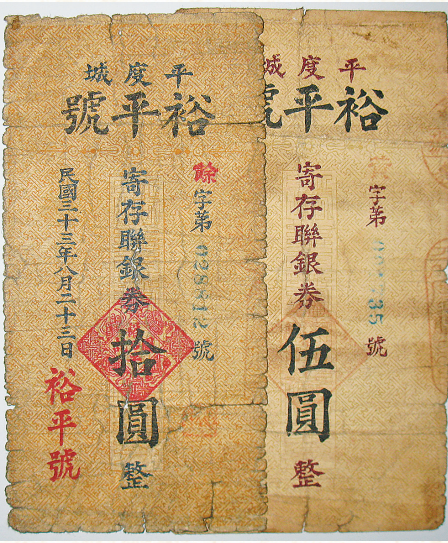 平度城
裕平號
餘字第 號
寄存聯銀券拾圓整
民國三十三年八月二十三日
裕平號
平度城
裕平號
字第 號
寄存聯銀券伍圓整